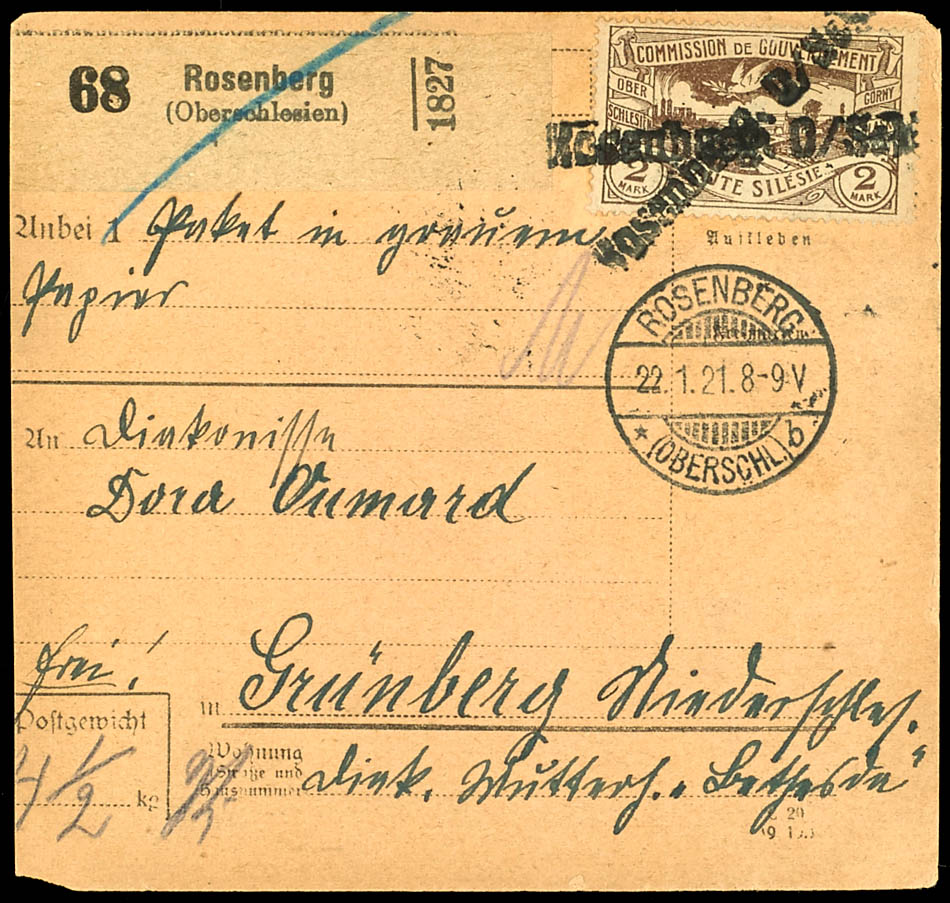 68 Rosenberg
(Oberschlesien)
1827
COMMISSION DE GOUVERNEMENT
OBER
SCHLESIEN
GORNY
HAUTE SILÉSIE
2 MARK
2 MARK
Rosenberg O/S
Rosenberg O/S
Anbei 1 Paket in grauem
Papier
Aufkleben
ROSENBERG
22.1.21.8-9V
* (OBERSCHL.) b
An Diakonisse
Dora
frei!
in Grünberg Niederschles.
Postgewicht
4 1/2 kg
Wohnung
(Straße und
Hausnummer
Diak. Mutterh. „Bethesda"